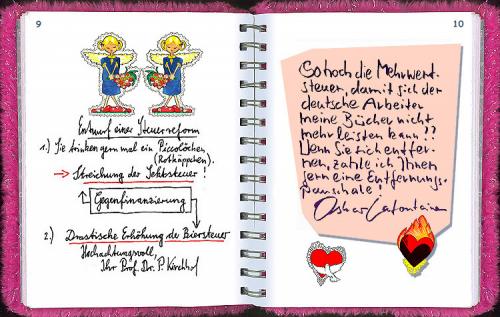 9
Entwurf einer Steuerreform
1.) Sie trinken gern mal ein Piccolöchen,
(Rotkäppchen).
→ Streichung der Sektsteuer!
Gegenfinanzierung
2.) Drastische Erhöhung der Biersteuer
Hochachtungsvoll,
Ihr Prof. Dr. P. Kirchhof
10
So hoch die Mehrwert-
steuer, damit sich der
deutsche Arbeiter
meine Bücher nicht
mehr leisten kann??
Wenn Sie sich entfer-
nen, zahle ich Ihnen
gern eine Entfernungs-
pauschale!
Oskar Lafontaine